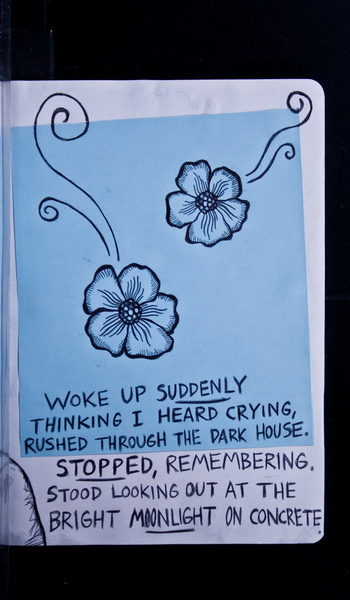 WOKE UP SUDDENLY
THINKING I HEARD CRYING,
RUSHED THROUGH THE DARK HOUSE.
STOPPED, REMEMBERING.
STOOD LOOKING OUT AT THE
BRIGHT MOONLIGHT ON CONCRETE.